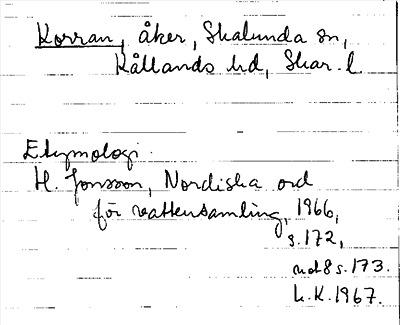 Korran, åker, Skalunda sn,
Kållands hd, Skar. l.
Etymologi.
H. Jonsson, Nordiska ord
för vattensamling, 1966,
s. 172,
not 8 s. 173.
L.K. 1967.